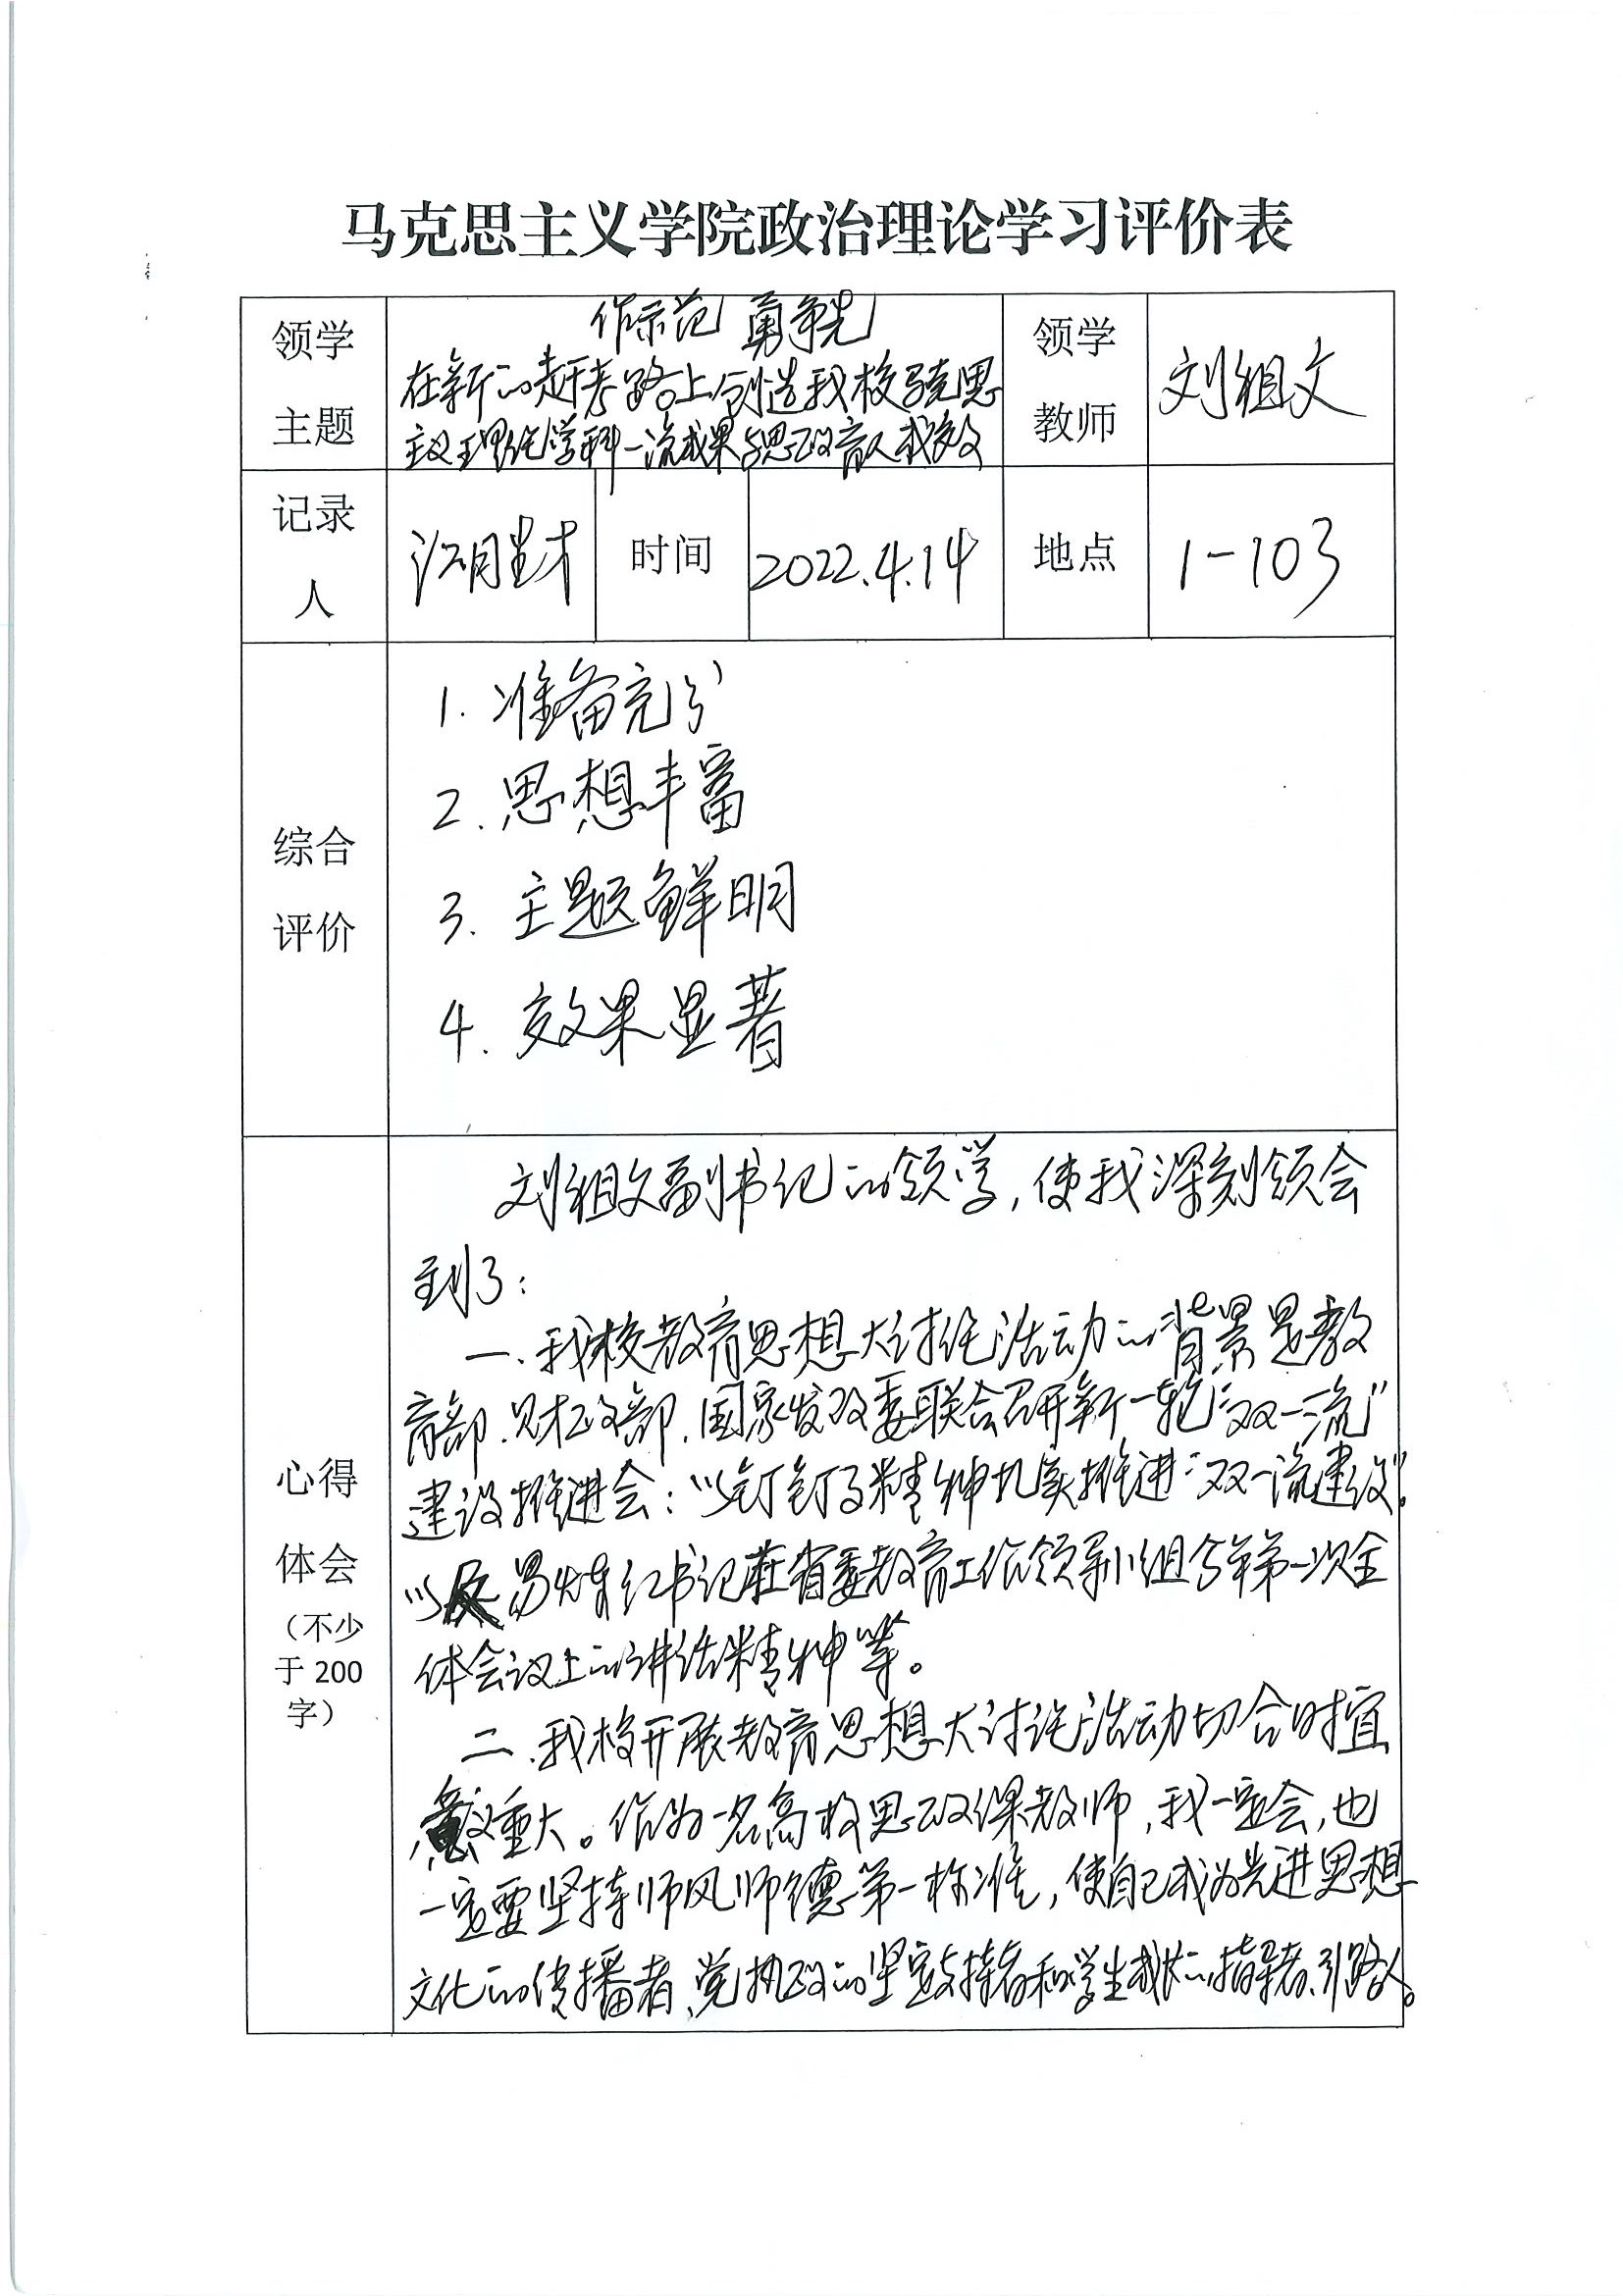 马克思主义学院政治理论学习评价表
领学
主题
作示范 勇争先
在新的赶考路上创造我校马克思
主义理论学科一流成果与思政育人成效
领学
教师
刘祖文
记录
人
时间
2022.4.14
地点
1-103
综合
评价
1. 准备充分
2. 思想丰富
3. 主题鲜明
4. 效果显著
心得
体会
（不少
于 200
字）
刘祖文副书记的领学，使我深刻领会
到了：
一、我校教育思想大讨论活动的背景是教
育部、财政部、国家发改委联合召开新一轮“双一流”
建设推进会：以钉钉子精神扎实推进“双一流建设”。
以及易炼红书记在省委教育工作领导小组今年第一次全
体会议上的讲话精神等。
二、我校开展教育思想大讨论活动切合时宜
意义重大。作为一名高校思政课教师，我一定会，也
一定要坚持师风师德第一标准，使自己成为先进思想
文化的传播者、党执政的坚定支持者和学生成长的指导者、引路人。